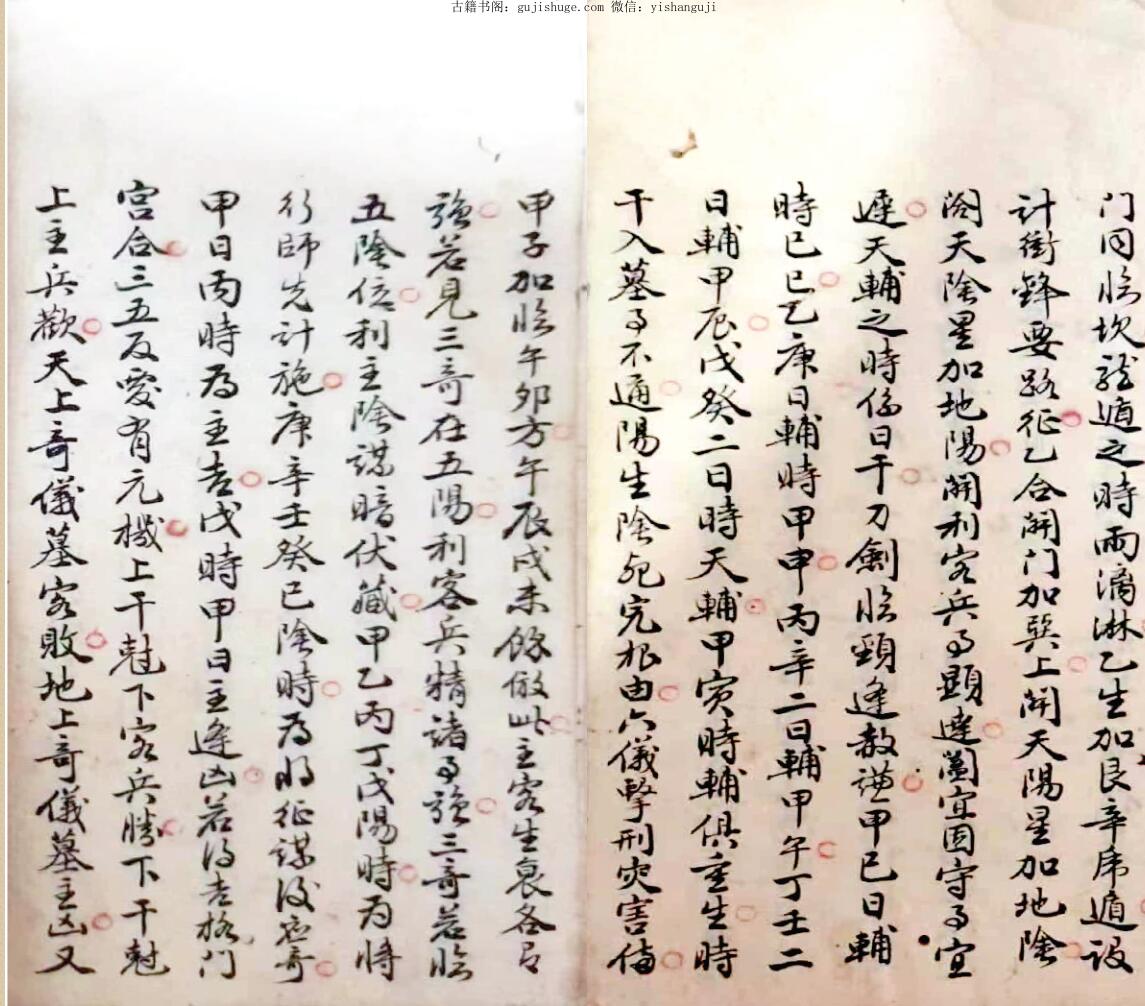 古籍书阁：gujishuge.com 微信：yishanguji
门同临坎龍遁之時雨滴淋乙生加艮辛虎遁设
计衝鋒要路征乙合開门加巽上開天陽星加地陰
阁天陰星加地陽開利客兵事顕達阖宜固守事宜
遲天輔之時係日干刀劍临頸逢赦谦甲已日輔
時已巳乙庚日輔時甲申丙辛二日輔甲午丁壬二
日輔甲辰戊癸二日時天輔甲寅時輔俱重生時
干入墓事不通陽生陰死究根由六儀擊刑灾害偹
甲子加临午卯方午辰戌未餘倣此主客生衰各占
強若見三奇在五陽利客兵精諸事強三奇若临
五陰位利主陰謀暗伏藏甲乙丙丁戊陽時为将
行師先计施庚辛壬癸已陰時为將征謀後應奇
甲日丙時为主吉戊時甲日主逢凶若得吉格门
宫合三五反愛有元機上干尅下客兵勝下干尅
上主兵歡天上奇儀墓客敗地上奇儀墓主凶又